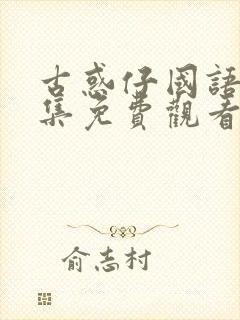 古惑仔國語
集免費觀看
俞志村